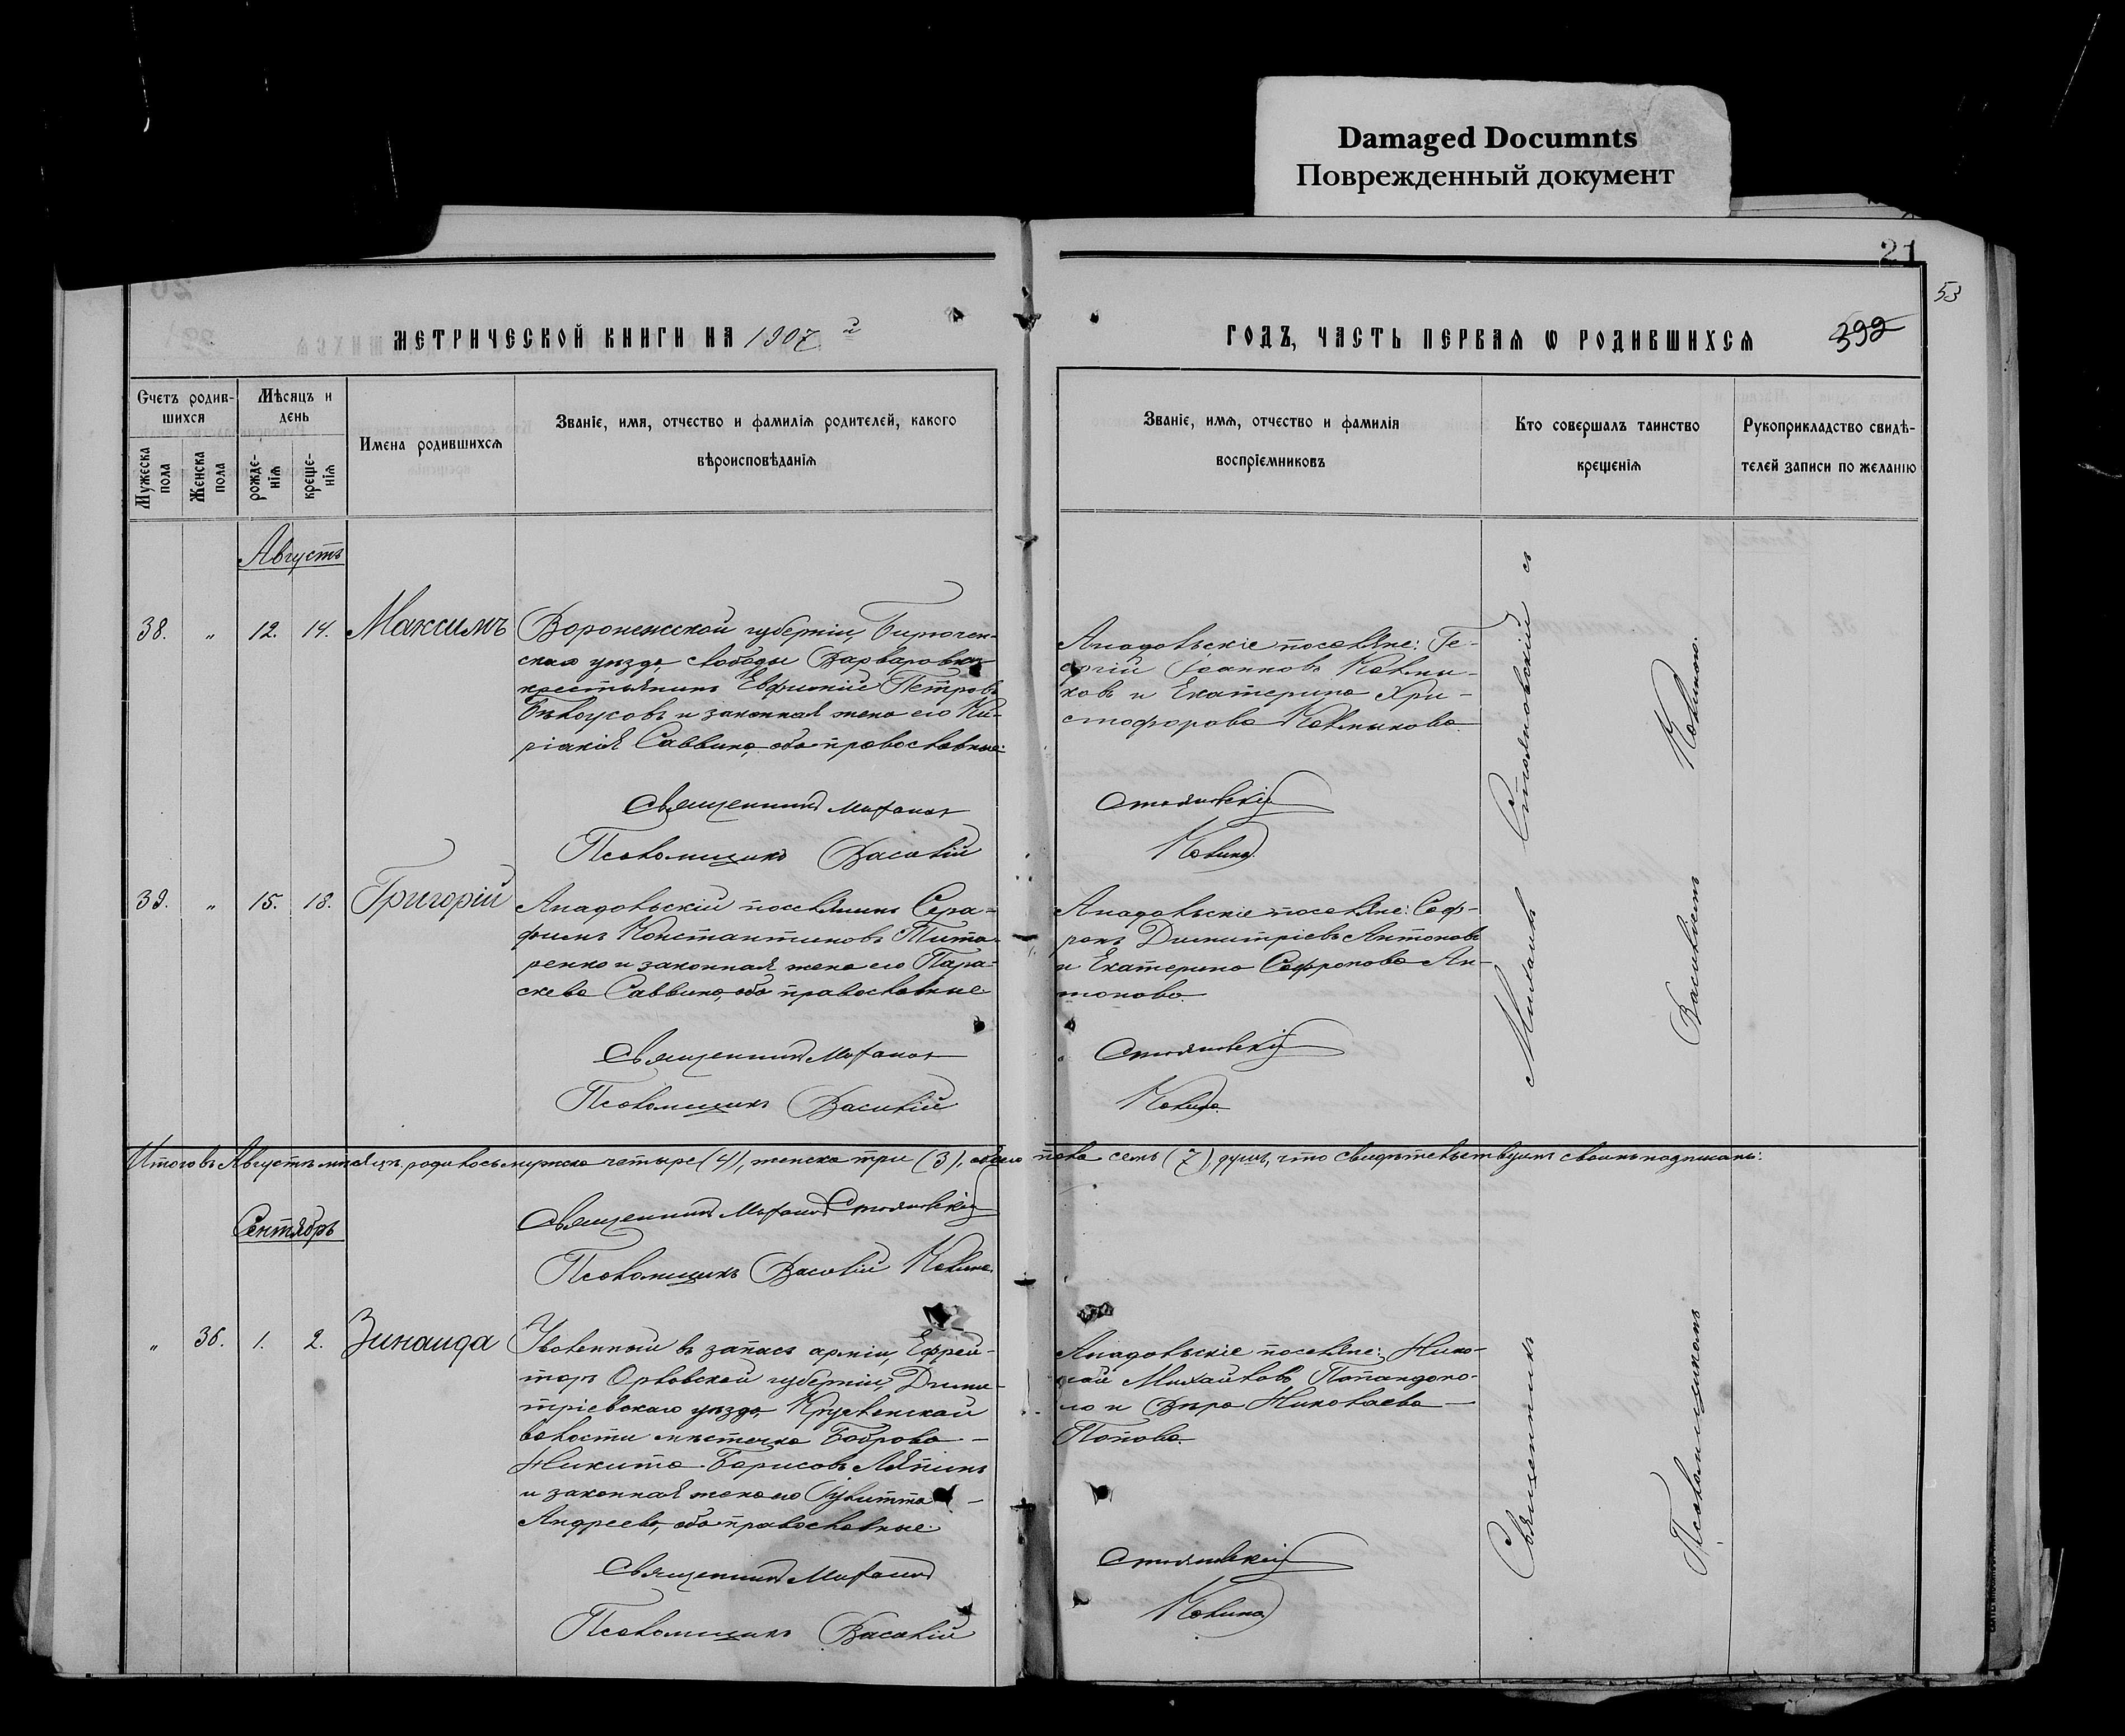 Damaged Documnts
Поврежденный документ
21
53
392
МЕТРИЧЕСКОЙ КНИГИ НА 1907 й
ГОДЪ, ЧАСТЬ ПЕРВАѦ Ѡ РОДИВШИХСѦ
Счетъ родив-
шихся
Мужеска пола
Женска пола
Мѣсяцъ и
день
рожде-
нія
креще-
нія
Имена родившихся
Званіе, имя, отчество и фамилія родителей, какого
вѣроисповѣданія
Званіе, имя, отчество и фамилія
воспріемниковъ
Кто совершалъ таинство
крещенія
Рукоприкладство свидѣ-
телей записи по желанію
Августъ
38. " 12. 14. Максимъ
Воронежской губерніи Бирючен-
скаго уѣзда, слободы Варваровки
крестьянинъ Евфимій Петровъ
Бѣлоусовъ и законная жена его Ки-
ріакія Саввина, оба православные.
Священникъ Михаилъ
Псаломщикъ Василій
Анадольскіе поселяне: Ге-
оргій Іоанновъ
и Екатерина Хри-
стофорова
Стояновскій
39. " 15. 18. Григорій
Анадольскій поселянинъ Сера-
фимъ Константиновъ Тита-
ренко и законная жена его Пара-
скева Саввина, оба православные.
Священникъ Михаилъ
Псаломщикъ Василій
Анадольскіе поселяне: Соф-
ронъ Димитріевъ Антоновъ
и Екатерина Софронова Ан-
тонова.
Стояновскій
Итого въ Августѣ мѣсяцѣ родилось мужска четыре (4), женска три (3), обоего пола семь (7) душъ, что свидѣтельствуемъ своимъ подписомъ:
Священникъ Михаилъ Стояновскій
Псаломщикъ Василій
Сентябрь
" 36. 1. 2. Зинаида
Уволенный въ запасъ арміи, Ефрей-
торъ Орловской губерніи, Дими-
тріевскаго уѣзда,
волости мѣстечка Боброва
Никита Борисовъ Ляпинъ
и законная жена его Іулитта
Андреева, оба православные.
Священникъ Михаилъ
Псаломщикъ Василій
Анадольскіе поселяне: Нико-
лай Михайловъ Попандопо-
ло и Вѣра Николаева
Попова.
Стояновскій
Священникъ Михаилъ Стояновскій съ
Псаломщикомъ Василіемъ